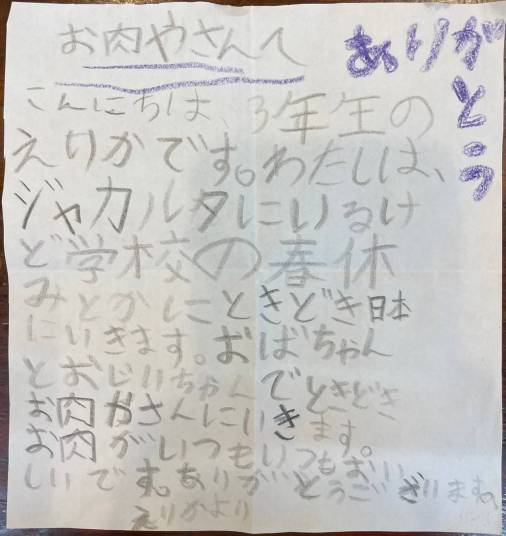 お肉やさんへ
ありがとう
こんにちは、3年生の
えりかです。わたしは、
ジャカルタにいるけ
ど学校の春休
みとかにときどき日本
にいきます。おばちゃん
とおじいちゃんでときどき
お肉がさんにいきます。
お肉がいつもいつもおいい
しいです。ありがとうござります。
えりかより